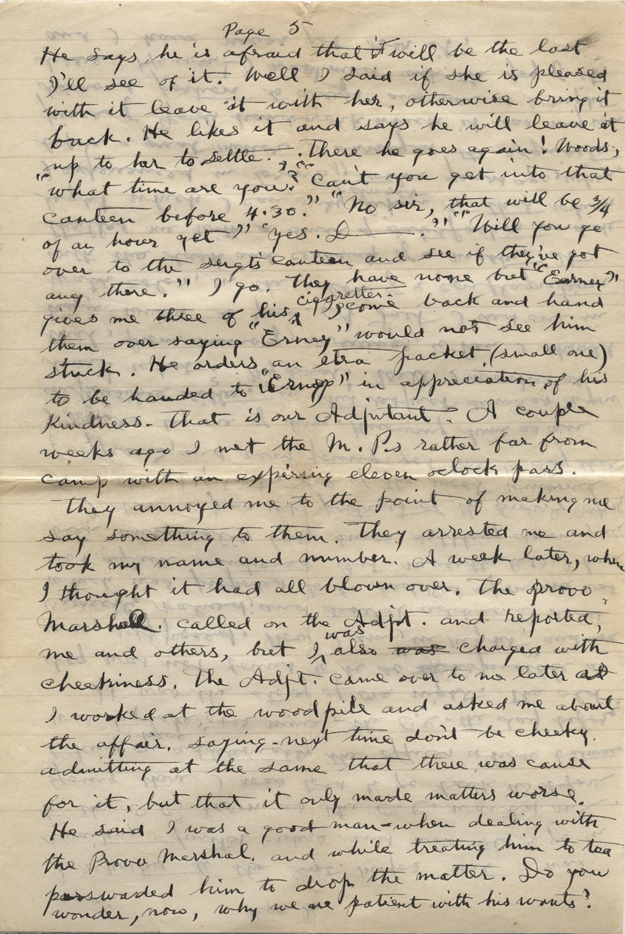 Page 5
He says, he is afraid that it will be the last
I'll see of it. Well I said if she is pleased
with it leave it with her, otherwise bring it
back. He likes it and says he will leave it
up to her to settle. There he goes again! Woods,
"what time are you?" "Can't you get into that
canteen before 4.30?" "No sir, that will be 3/4
of an hour yet" "yes. D———." "Will you go
over to the sergts canteen and see if they've got
any there." I go. They have none but "Erney"
gives me three of his cigarettes I come back and hand
them over saying "Erney" would not see him
stuck. He orders an etra packet (small one)
to be handed to "Erney" in appreciation of his
kindness. That is our Adjutant. A couple
weeks ago I met the M.P.s rather far from
camp with an expiring eleven oclock pass.
They annoyed me to the point of making me
say something to them. They arrested me and
took my name and number. A week later, when
I thought it had all blown over. The Provo
Marshall. called on the Adjt. and reported,
me and others, but I was also was charged with
cheekiness. The Adjt. came over to me later as
I worked at the woodpile and asked me about
the affair. saying-next time don't be cheeky.
admitting at the same that there was cause
for it, but that it only made matters worse.
He said I was a good man-when dealing with
the Provo Marshal. and while treating him to tea
perswaded him to drop the matter. Do you
wonder, now, why we are patient with his wants?